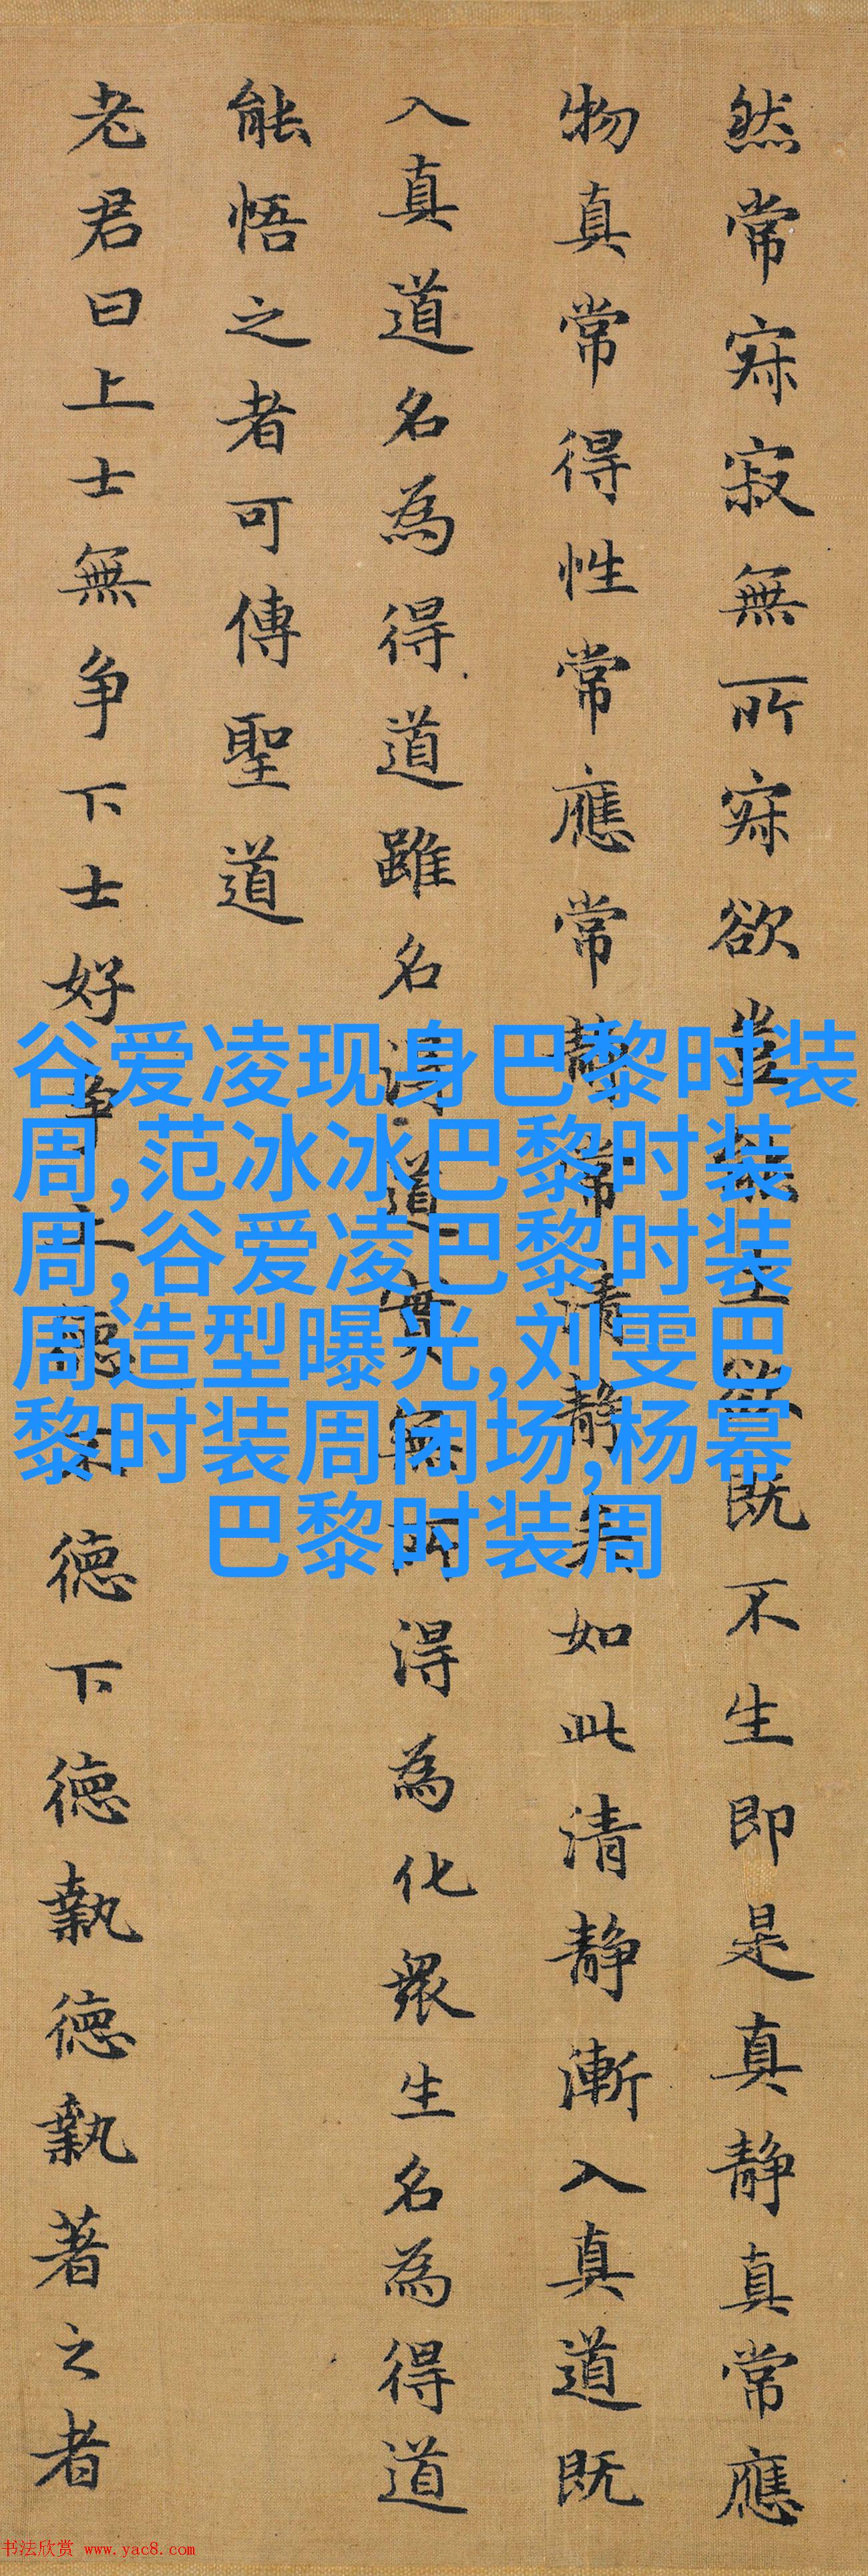 然常寂寂無所寂欲豈能生欲既不生即是真静真常應
物真常得性常應常静常清静矣如此清静漸入真道既
入真道名為得道雖名得道實無所得為化衆生名為得道
能悟之者可傳聖道
老君曰上士無争下士好争上德不德下德執德執著之者
谷爱凌现身巴黎时装
周,范冰冰巴黎时装
周,谷爱凌巴黎时装
周造型曝光,刘雯巴
黎时装周闭场,杨幂
巴黎时装周
书法欣赏 www.yac8.com